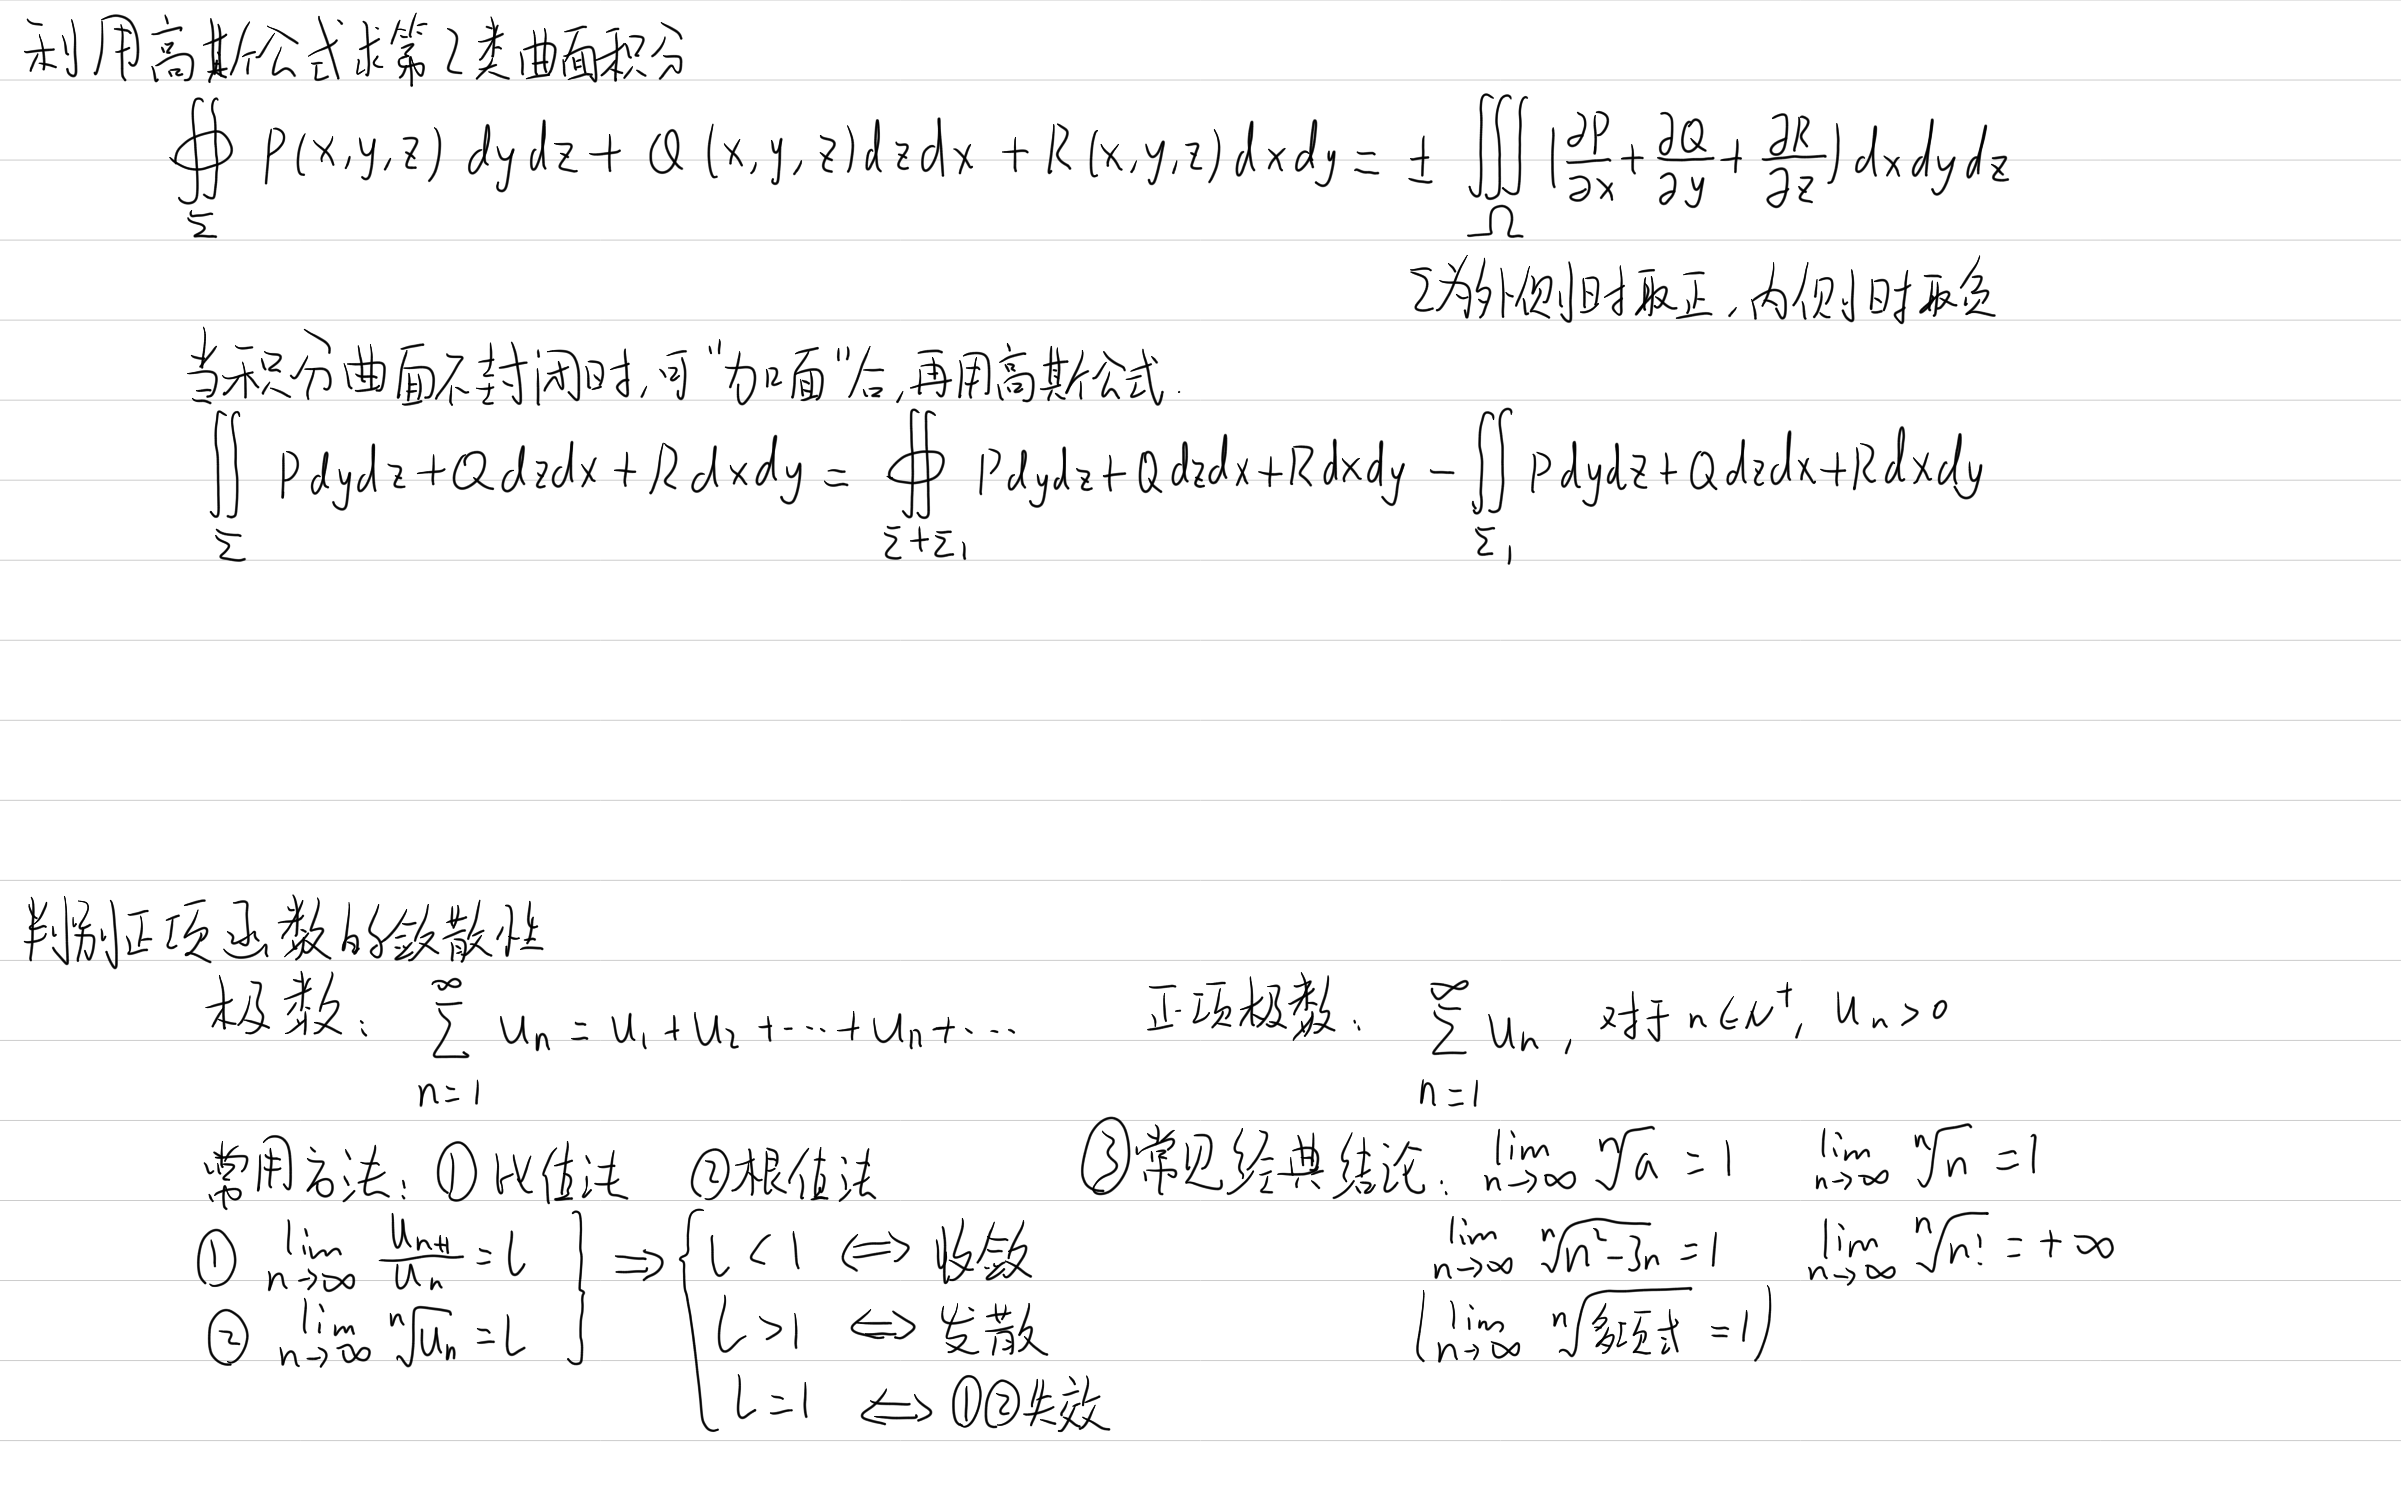 利用高斯公式求第2类曲面积分
∯_Σ P(x,y,z) dydz + Q(x,y,z)dzdx + R(x,y,z)dxdy = ± ∭_Ω (∂P/∂x + ∂Q/∂y + ∂R/∂z) dxdydz
Σ为外侧时取正,内侧时取负
当积分曲面不封闭时,可"加面"后,再用高斯公式.
∬_Σ Pdydz+Qdzdx+Rdxdy = ∯_{Σ+Σ₁} Pdydz+Qdzdx+Rdxdy - ∬_{Σ₁} Pdydz+Qdzdx+Rdxdy
判别正项函数的敛散性
极数: ∑_{n=1}^{∞} uₙ = u₁+u₂+⋯+uₙ+⋯ 正项极数: ∑_{n=1}^{∞} uₙ, 对于 n∈N⁺, uₙ>0
常用方法: ①比值法 ②根值法 ③常见经典结论: lim_{n→∞} ⁿ√a = 1 lim_{n→∞} ⁿ√n = 1
① lim_{n→∞} uₙ₊₁/uₙ = l ⇒ { l < 1 ⇔ 收敛 lim_{n→∞} ⁿ√(n²-3n) = 1 lim_{n→∞} ⁿ√(n!) = +∞
② lim_{n→∞} ⁿ√uₙ = l l > 1 ⇔ 发散 (lim_{n→∞} ⁿ√多项式 = 1)
l = 1 ⇔ ①②失效